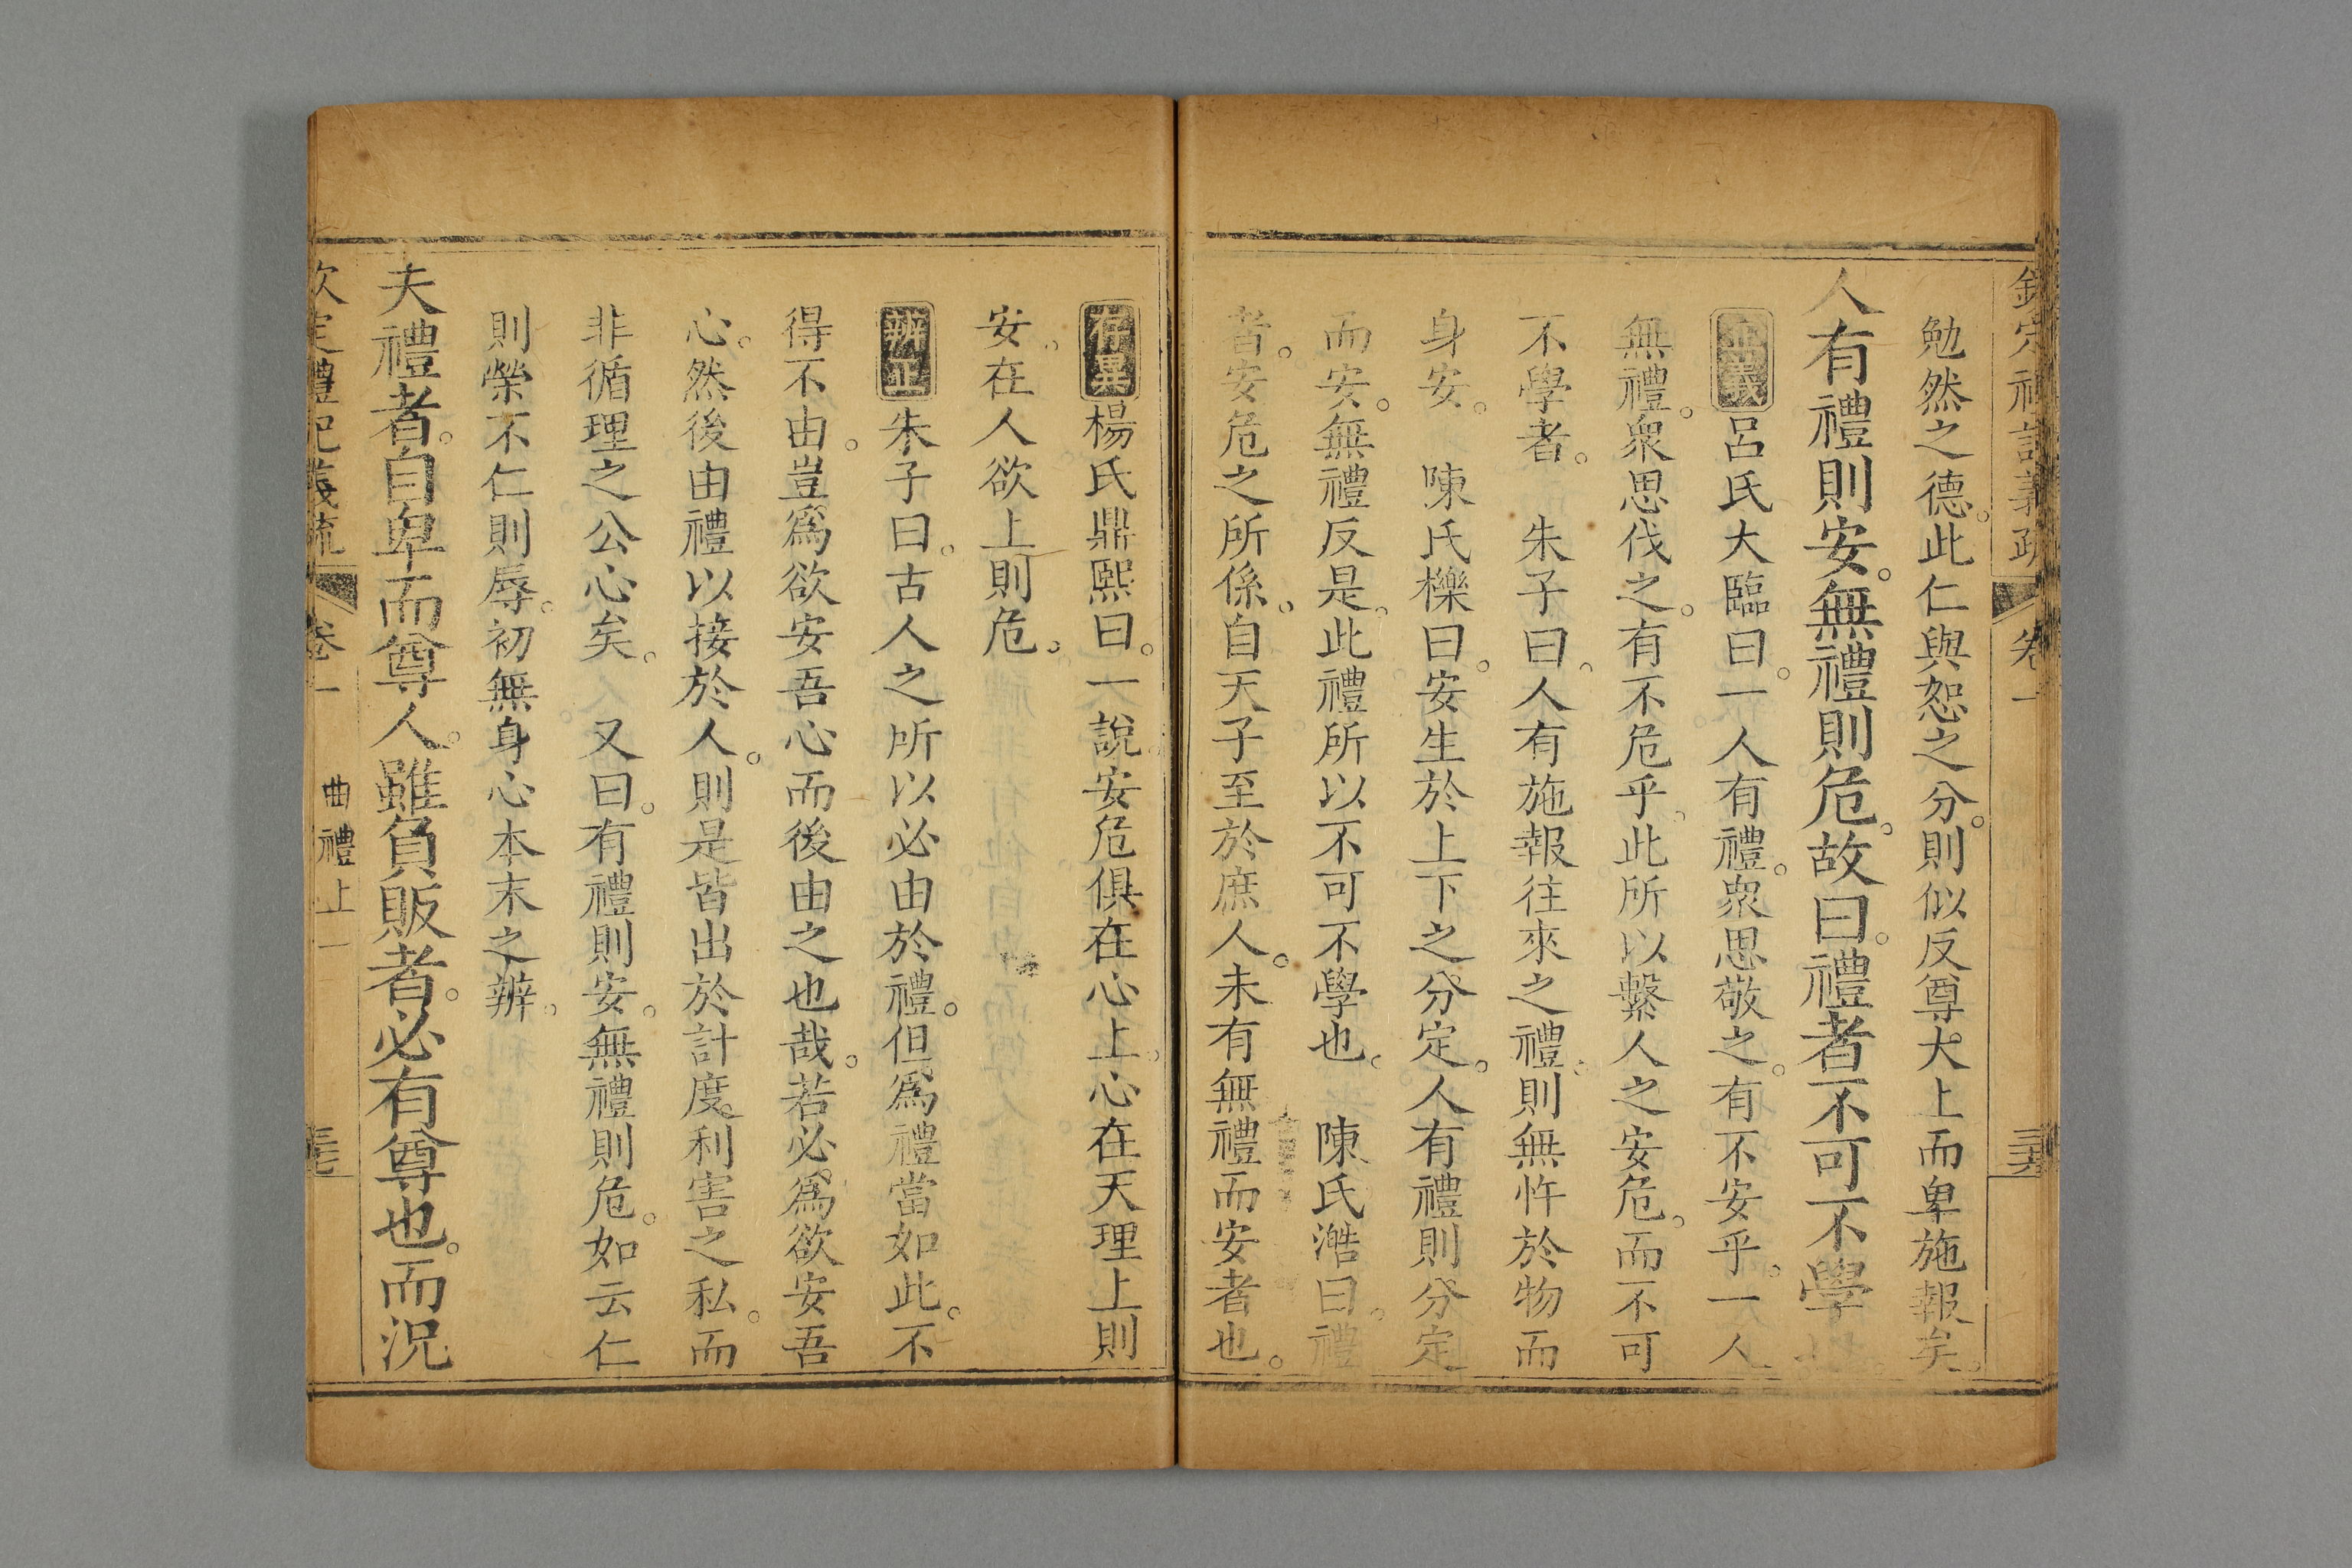 欽定禮記義疏 卷一
勉然之德。此仁與恕之分。則似反尊大。上而卑施報矣。
人有禮則安。無禮則危。故曰。禮者不可不學也。
正義呂氏大臨曰。一人有禮。衆思敬之。有不安乎。一人
無禮。衆思伐之。有不危乎。此所以繫人之安危。而不可
不學者。 朱子曰。人有施報往來之禮。則無忤於物而
身安。 陳氏櫟曰。安生於上下之分定。人有禮則分定
而安。無禮反是。此禮所以不可不學也。 陳氏澔曰。禮
者。安危之所係。自天子至於庶人。未有無禮而安者也。
存異楊氏鼎熙曰。一說安危俱在心上。心在天理上則
安。在人欲上則危。
辨正朱子曰。古人之所以必由於禮。但爲禮當如此。不
得不由。豈爲欲安吾心而後由之也哉。若必爲欲安吾
心。然後由禮以接於人。則是皆出於計度利害之私。而
非循理之公心矣。 又曰。有禮則安。無禮則危。如云仁
則榮不仁則辱。初無身心本末之辨。
夫禮者。自卑而尊人。雖負販者。必有尊也。而況
欽定禮記義疏 卷一 曲禮上一